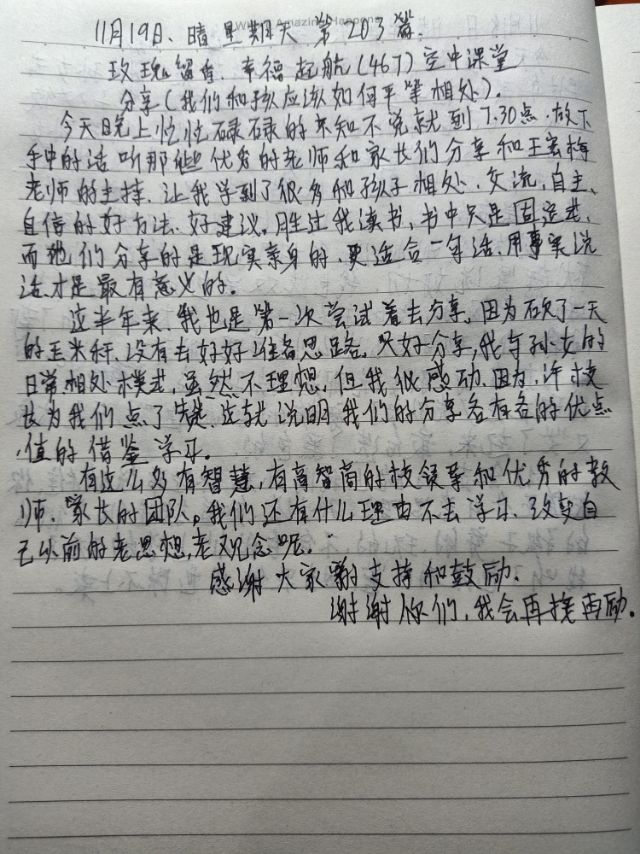 11月19日、晴 星期天 第203篇.
玫瑰留香 幸福起航(467)空中课堂
分享(我们和孩应该如何平等相处).
今天晚上忙忙碌碌的不知不觉就到7.30点.放下
手中的活 听那些优秀的老师和家长们分享和王宏梅
老师的主持.让我学到了很多和孩子相处.交流,自主、
自信的好方法.好建议,胜过我读书,书中只是固定式,
而他们分享的是现实亲身的.更适合一句话.用事实说
话才是最有意义的.
这半年来,我也是第一次尝试着去分享.因为砍了一天
的玉米秆.没有去好好准备思路.只好分享,我与孙女的
日常相处模式,虽然不理想,但我很感动.因为,许校
长为我们点了赞.这就说明我们的分享各有各的优点
值的借鉴学习.
有这么多有智慧,有高智商的校领导和优秀的教
师.家长的团队。我们还有什么理由不去学习.改变自
己以前的老思想,老观念呢.
感谢大家的支持和鼓励.
谢谢你们,我会再接再励。